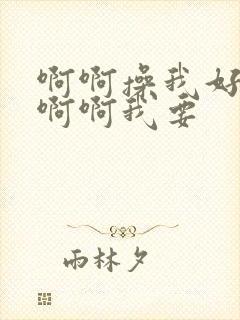 啊啊操我好
啊啊我要
雨林夕